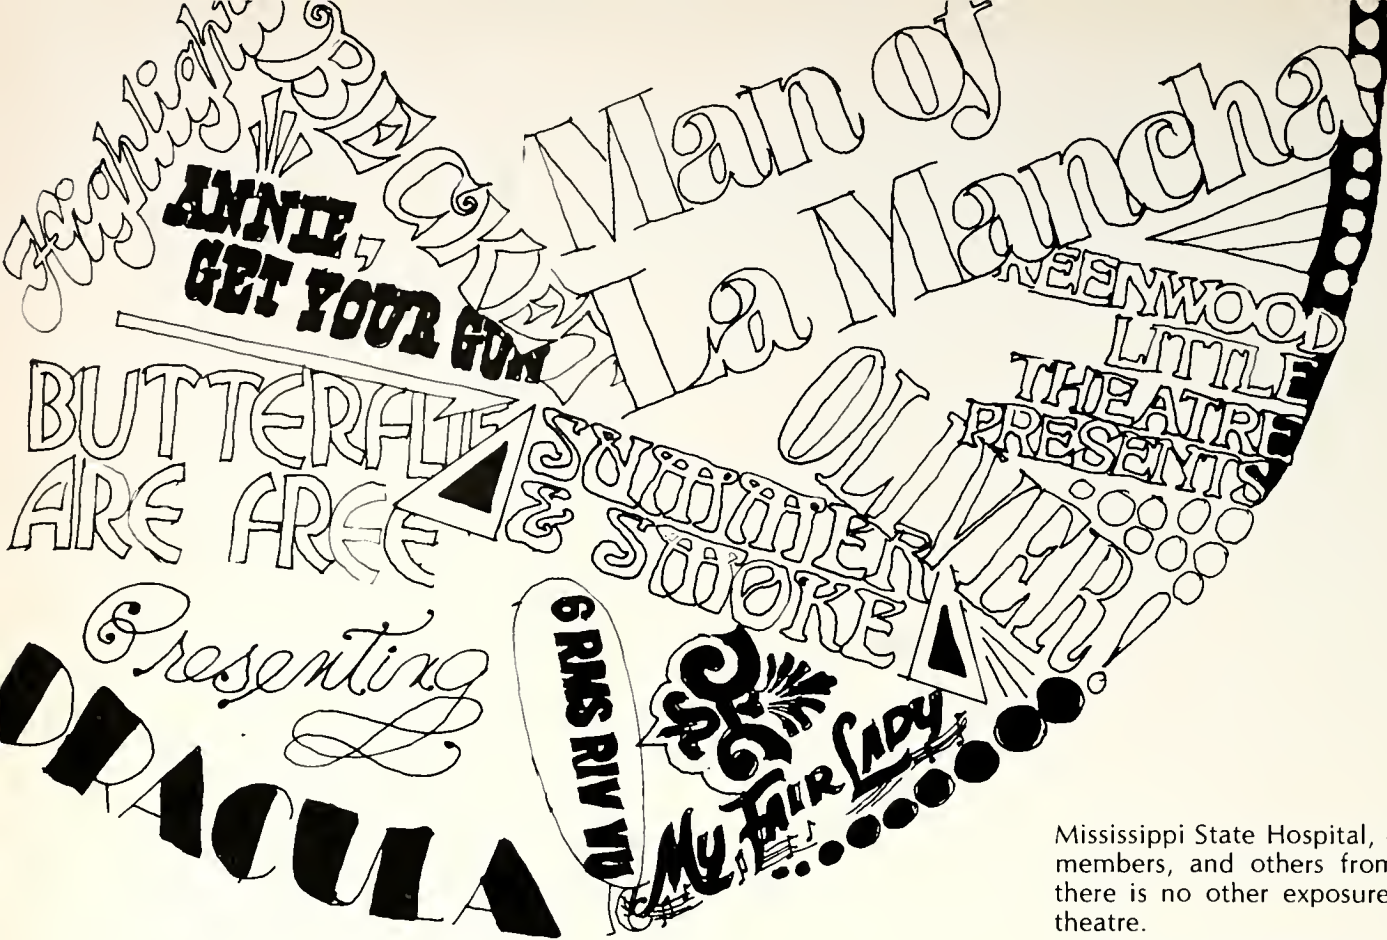 Highlight
BECKET
ANNIE,
GET YOUR GUN
Man of
La Mancha
GREENWOOD
LITTLE
THEATRE
PRESENTS
OLIVER!
BUTTERFLIES
ARE FREE
SUMMER
& SMOKE
Presenting
DRACULA
6 RMS RIV VU
MY FAIR LADY
Mississippi State Hospital,
members, and others from
there is no other exposure
theatre.